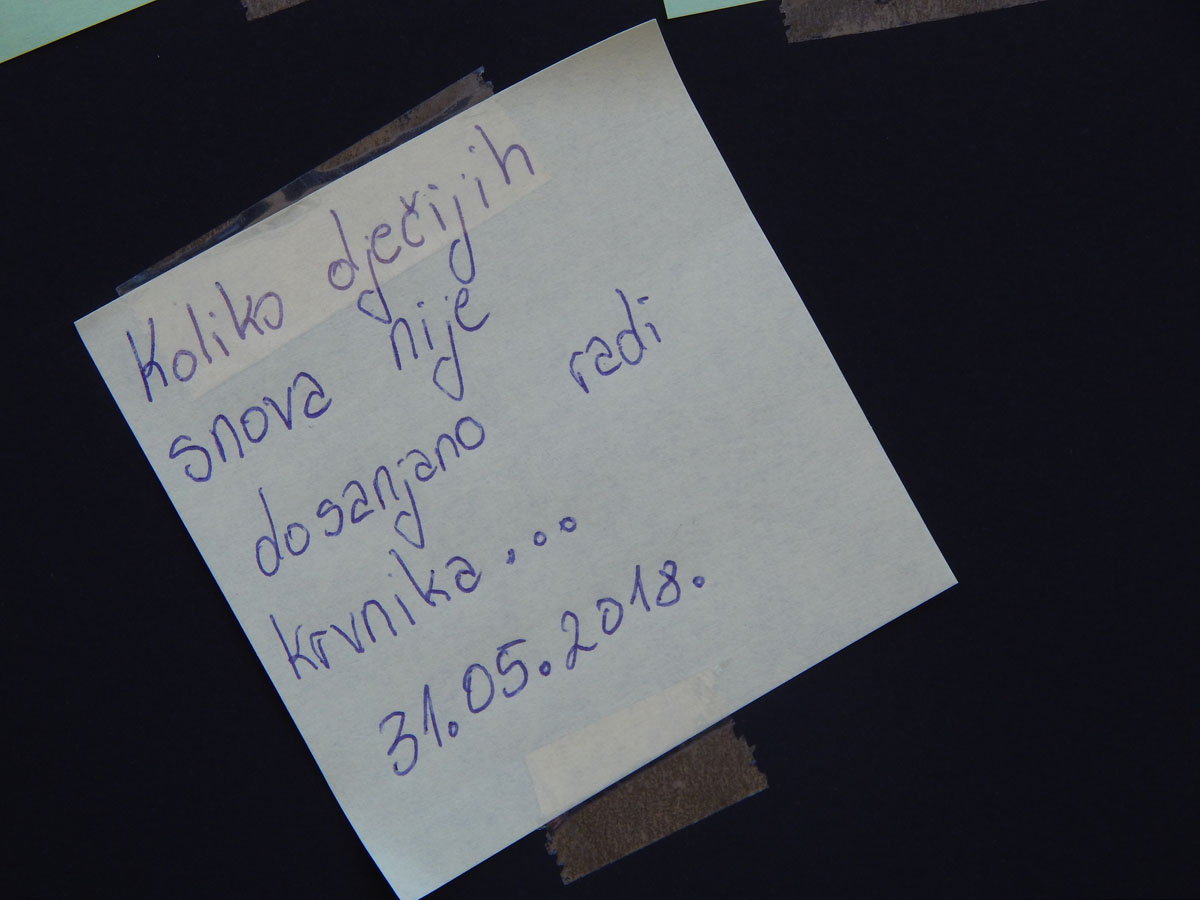 Koliko dječijih
snova nije
dosanjano radi
krvnika...
31.05.2018.